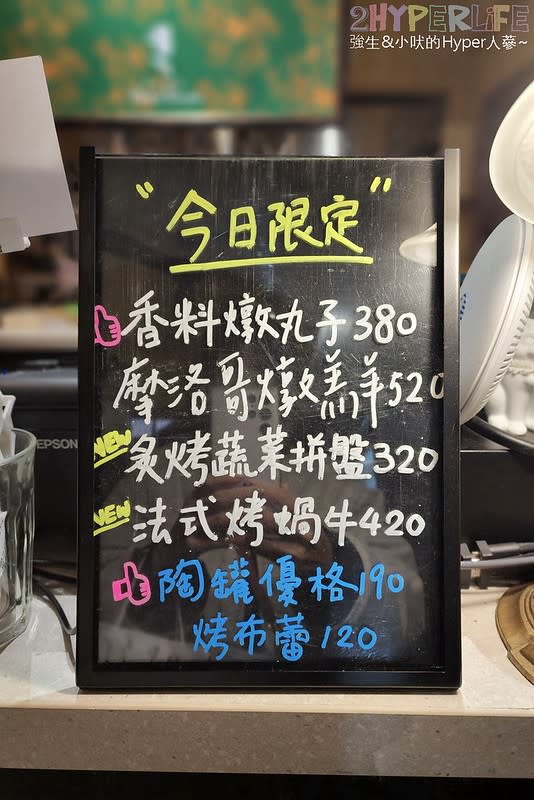 2HYPERLIFE
強生&小吠的Hyper人蔘~
"今日限定"
香料燉丸子380
摩洛哥燉羔羊520
NEW 炙烤蔬菜拼盤320
NEW 法式烤蝸牛420
陶罐優格190
烤布蕾120
EPSON